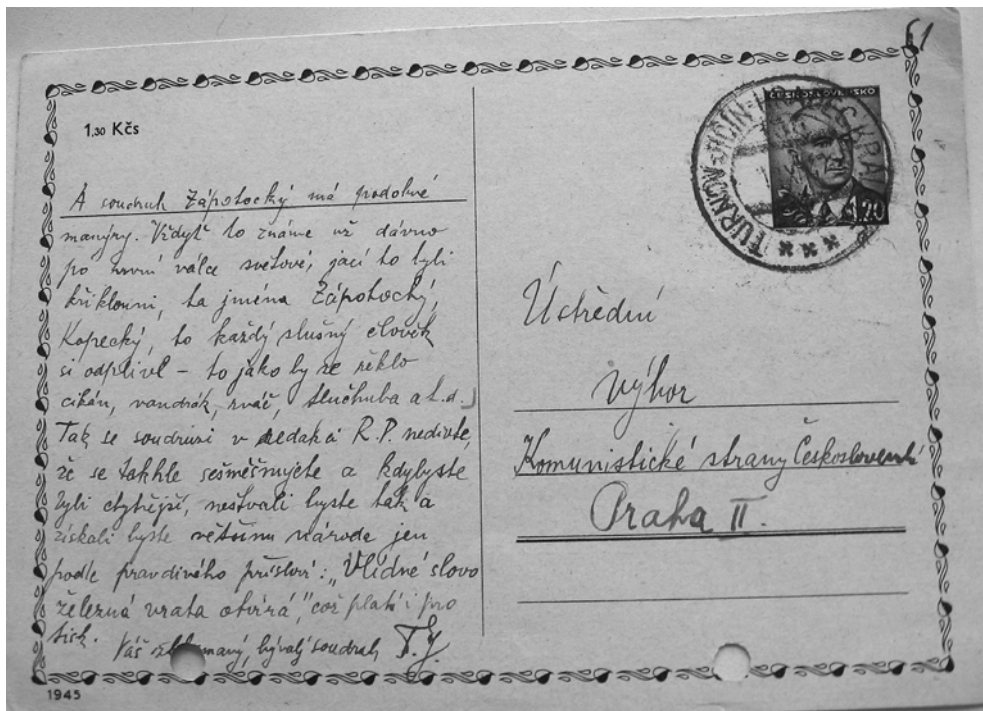 61
1.30 Kčs
ČESKOSLOVENSKO
1.20
TURNOV-JIČÍN-HRADEC KRÁL
A soudruh Zápotocký má podobné
manýry. Vždyť to známe už dávno
po první válce světové, jací to byli
křiklouni, ta jména Zápotocký,
Kopecký, to každý slušný člověk
si odplivl – to jako by se řeklo
cikán, vandrák, rváč, tlučhuba a t.d.
Tak se soudruzi v redakci R.P. nedivte,
že se takhle sesměšňujete a kdybyste
byli chytřejší, neštvali byste tak a
získali byste většinu národa jen
podle pravdivého přísloví: „Vlídné slovo
železná vrata otvírá," což platí i pro
tisk. Váš zklamaný, bývalý soudruh
Ústřední
výbor
Komunistické strany Československé
Praha II.
1945